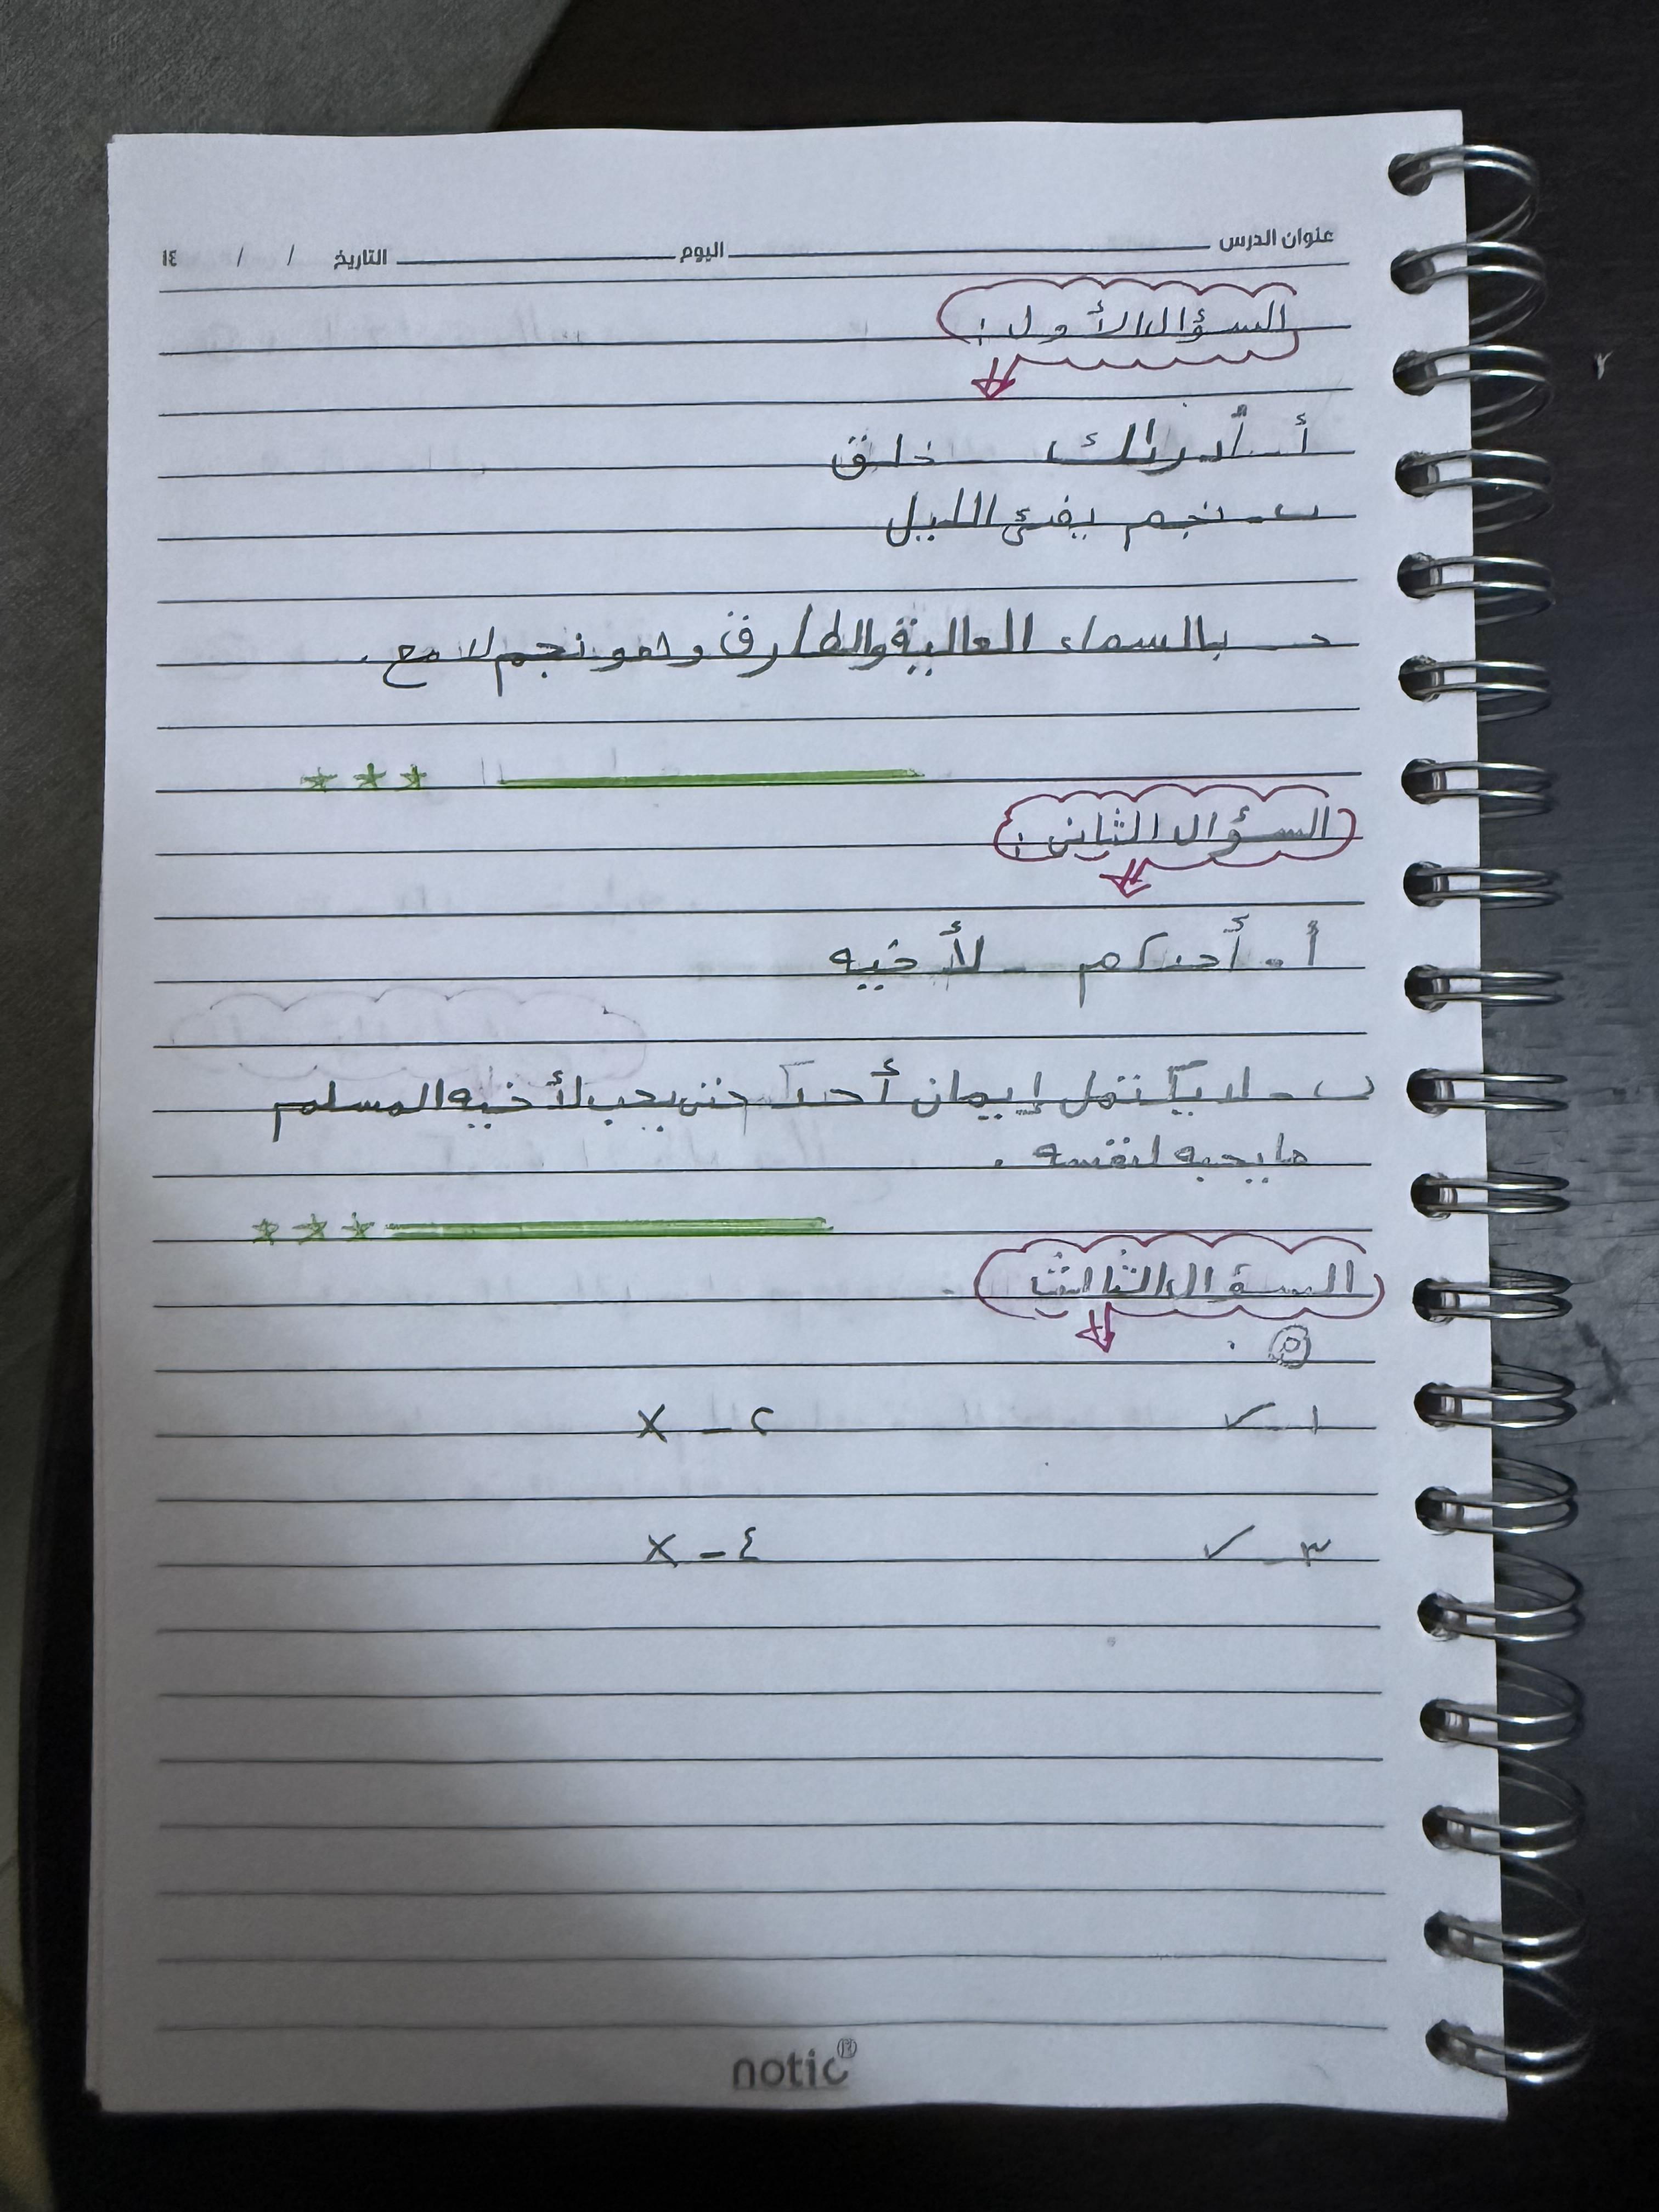 عنوان الدرس اليوم التاريخ / / ١٤
السؤال الأول :
أ - أدراك - خلق
ب - نجم يضئ الليل
د - بالسماء العالية والطارق وهو نجم لامع .
السؤال الثاني :
أ - أحدكم - لأخيه
ب - لا يكتمل إيمان أحد حتى يحب لأخيه المسلم
ما يحبه لنفسه .
السؤال الثالث
١ - ✓ ٢ - X
٣ - ✓ ٤ - X
notic